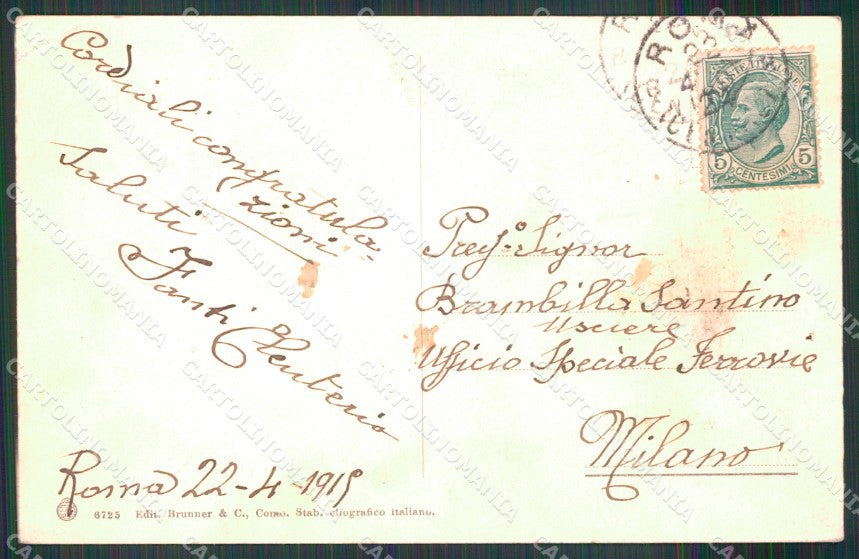 Cordiali congratula-
zioni
Saluti
Fanti Eleuterio
Roma 22-4-1915
6725 Edit. Brunner & C., Como. Stab. eliografico italiano.
ROMA
5 5
CENTESIMI
Preg.o Signor
Brambilla Santino
Usciere
Ufficio Speciale Ferrovie
Milano
CARTOLINOMANIA